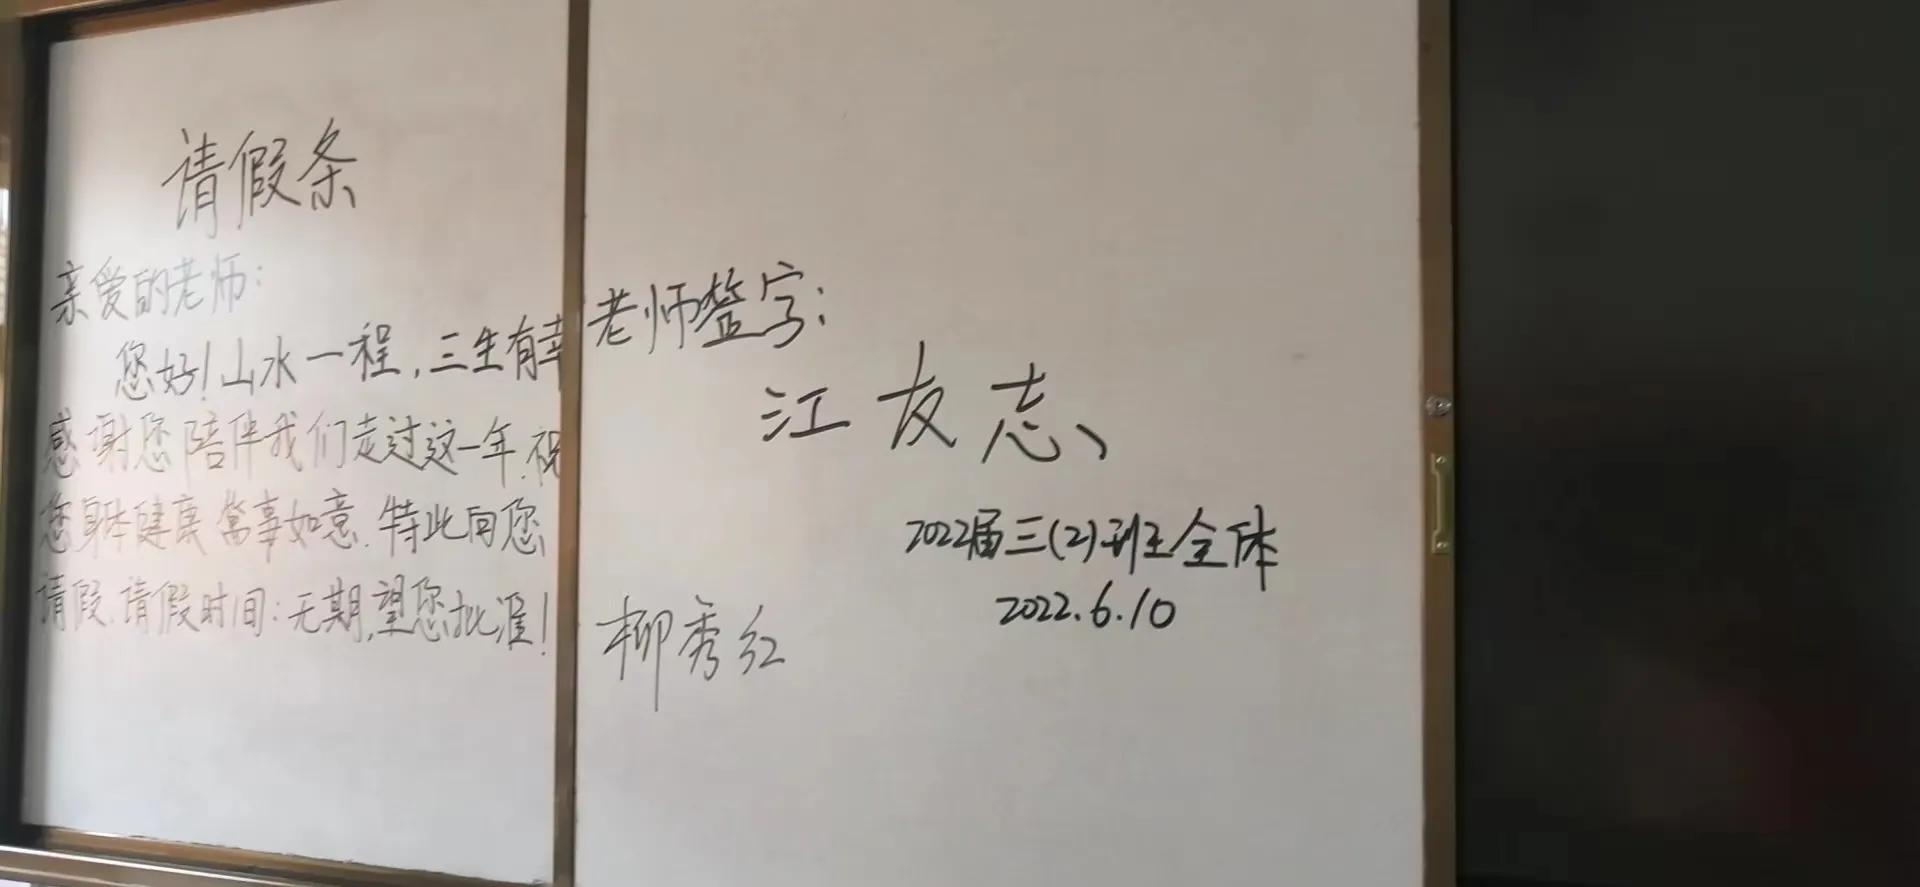 请假条
亲爱的老师：
您好！山水一程，三生有幸
感谢您陪伴我们走过这一年.祝
您身体健康 万事如意.特此向您
请假.请假时间：无期,望您批准！
老师签字：
江友志、
2022届三(2)班全体
2022.6.10
柳秀红